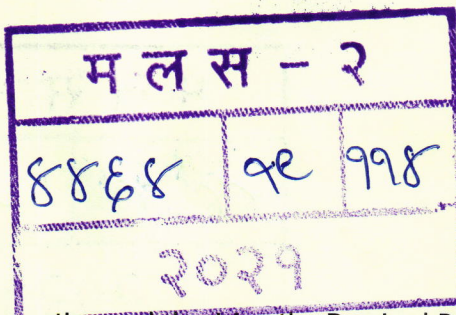 म ल स - २
४४६४ १९ ११४
२०२१